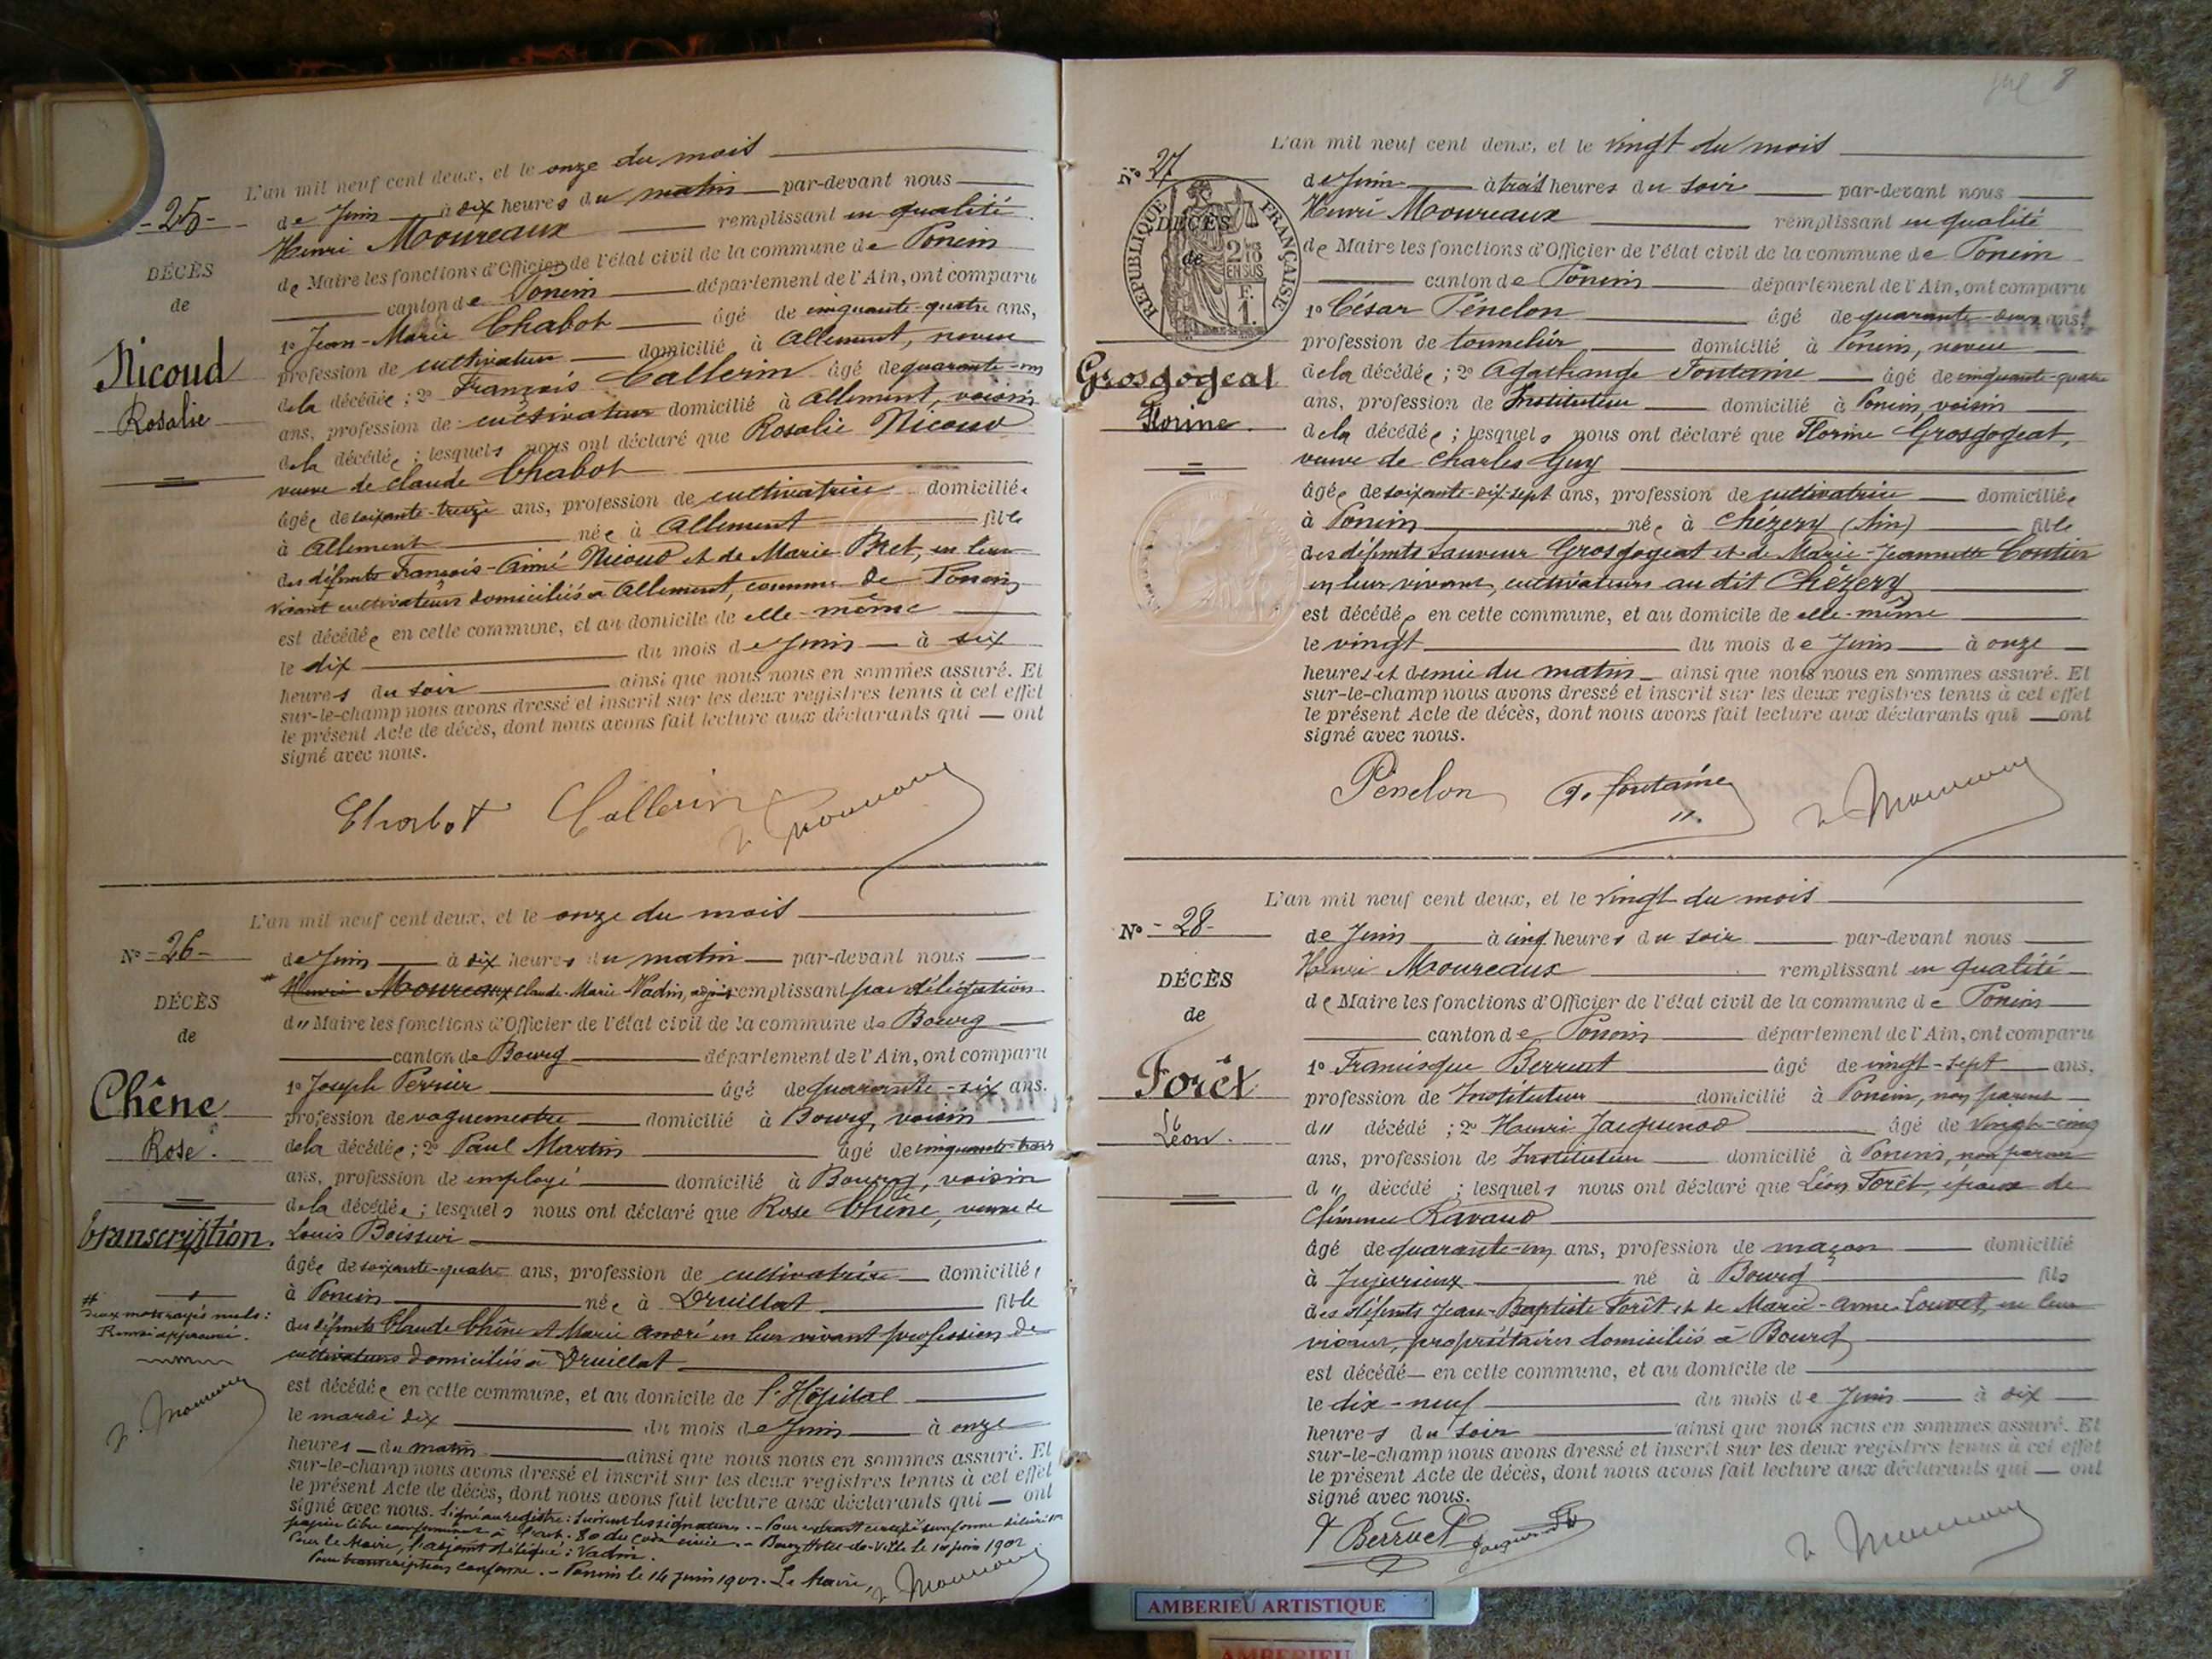 L'an mil neuf cent deux, et le onze du mois
- 25 -
de Juin à dix heures du matin par-devant nous
Henri Moureaux remplissant en qualité
de Maire les fonctions d'Officier de l'état civil de la commune de Poncin
canton de Poncin département de l'Ain, ont comparu
1º Jean-Marie Chabot âgé de cinquante-quatre ans,
profession de cultivateur domicilié à Allement, neveu
de la décédée ; 2º François Callerin âgé de quarante-un
ans, profession de cultivateur domicilié à Allement, voisin
de la décédée ; lesquels nous ont déclaré que Rosalie Nicoud
veuve de Claude Chabot
âgée de soixante-treize ans, profession de cultivatrice domiciliée
à Allement née à Allement fille
des défunts François-Aimé Nicoud et de Marie Bret, en leur
vivant cultivateurs domiciliés à Allement, commune de Poncin
est décédée en cette commune, et au domicile de elle-même
le dix du mois de Juin à six
heures du soir ainsi que nous nous en sommes assuré. Et
sur-le-champ nous avons dressé et inscrit sur les deux registres tenus à cet effet
le présent Acte de décès, dont nous avons fait lecture aux déclarants qui — ont
signé avec nous.
DÉCÈS
de
Nicoud
Rosalie
Chabot Callerin
L'an mil neuf cent deux, et le onze du mois
Nº - 26 -
de Juin à dix heures du matin par-devant nous
Henri Moureaux Claude-Marie Vadin, adjoint remplissant par délégation
du Maire les fonctions d'Officier de l'état civil de la commune de Bourg
canton de Bourg département de l'Ain, ont comparu
1º Joseph Perrier âgé de quarante-six ans.
profession de vaguemestre domicilié à Bourg, voisin
de la décédée ; 2º Paul Martin âgé de cinquante-trois
ans, profession de employé domicilié à Bourg, voisin
de la décédée ; lesquels nous ont déclaré que Rose Chêne, veuve de
Louis
âgée de soixante-quatre ans, profession de cultivatrice domiciliée
à Poncin née à Druillat fille
des défunts Claude Chêne et Marie André en leur vivant profession de
cultivateurs domiciliés à Druillat
est décédée en cette commune, et au domicile de l'Hôpital
le mardi dix du mois de Juin à onze
heures — du matin ainsi que nous nous en sommes assuré. Et
sur-le-champ nous avons dressé et inscrit sur les deux registres tenus à cet effet
le présent Acte de décès, dont nous avons fait lecture aux déclarants qui — ont
signé avec nous. Signé au registre : Suivent les signatures. - Pour extrait certifié conforme délivré sur
papier libre conformément à l'art. 80 du code civil. - Bourg Hôtel-de-Ville le juin 1902
Pour le Maire, l'adjoint délégué : Vadin.
Pour transcription conforme. - Poncin le 14 Juin 1902. Le Maire,
DÉCÈS
de
Chêne
Rose.
transcription.
# deux mots rayés nuls :
Renvoi approuvé.
8
L'an mil neuf cent deux, et le vingt du mois
Nº 27
de Juin à trois heures du soir par-devant nous
Henri Moureaux remplissant en qualité
de Maire les fonctions d'Officier de l'état civil de la commune de Poncin
canton de Poncin département de l'Ain, ont comparu
1º César Pénelon âgé de quarante-deux ans,
profession de tonnelier domicilié à Poncin, neveu
de la décédée ; 2º Agathange Fontaine âgé de cinquante-quatre
ans, profession de Instituteur domicilié à Poncin, voisin
de la décédée ; lesquels nous ont déclaré que Florine Grosgogeat,
veuve de Charles Guy
âgée de soixante-dix-sept ans, profession de cultivatrice domiciliée
à Poncin née à Chézery (Ain) fille
des défunts Sauveur Grosgogeat et de Marie-Jeannette Coutier
en leur vivant, cultivateurs au dit Chézery
est décédée en cette commune, et au domicile de elle-même
le vingt du mois de Juin à onze
heures et demie du matin ainsi que nous nous en sommes assuré. Et
sur-le-champ nous avons dressé et inscrit sur les deux registres tenus à cet effet
le présent Acte de décès, dont nous avons fait lecture aux déclarants qui — ont
signé avec nous.
RÉPUBLIQUE FRANÇAISE
DÉCÈS
de
EN SUS
F.
1.
Grosgogeat
Florine.
Pénelon A. Fontaine
L'an mil neuf cent deux, et le vingt du mois
Nº - 28 -
de Juin à cinq heures du soir par-devant nous
Henri Moureaux remplissant en qualité
de Maire les fonctions d'Officier de l'état civil de la commune de Poncin
canton de Poncin département de l'Ain, ont comparu
1º Francisque Berruet âgé de vingt-sept ans,
profession de Instituteur domicilié à Poncin, non parent
du décédé ; 2º Henri Jacquenod âgé de vingt-cinq
ans, profession de Instituteur domicilié à Poncin, non parent
du décédé ; lesquels nous ont déclaré que Léon Forêt, époux de
Clémence Ravaud
âgé de quarante-un ans, profession de maçon domicilié
à Jujurieux né à Bourg fils
des défunts Jean-Baptiste Forêt et de Marie-Anne Louvet, en leur
vivant, propriétaires domiciliés à Bourg
est décédé — en cette commune, et au domicile de
le dix-neuf du mois de Juin à dix
heures du soir ainsi que nous nous en sommes assuré. Et
sur-le-champ nous avons dressé et inscrit sur les deux registres tenus à cet effet
le présent Acte de décès, dont nous avons fait lecture aux déclarants qui — ont
signé avec nous.
DÉCÈS
de
Forêt
Léon.
Berruet
AMBERIEU ARTISTIQUE
AMBERIEU